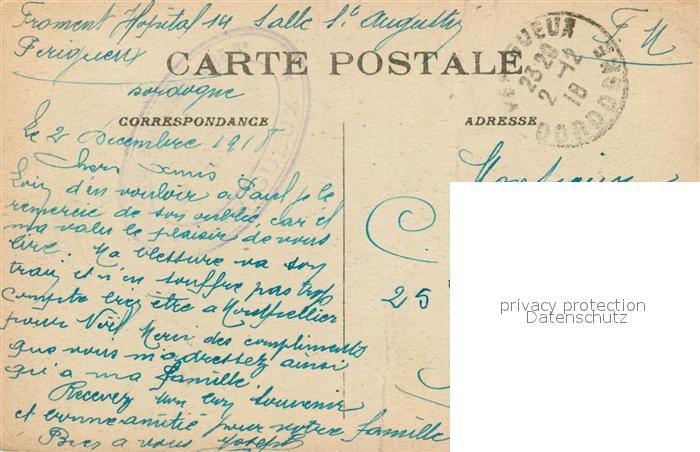 Froment Hopital 14 Salle St Augustin
F M
Perigueux
CARTE POSTALE
Dordogne
PERIGUEUX
23 20
2 -12
18
DORDOGNE
CORRESPONDANCE
ADRESSE
Le 2 Decembre 1918
Chers Amis
Monsieur
Loin d'en vouloir à Paul je le
remercie de son oublie car il
ma valu le plaisir de vous
lire. Ma blessure va son
train et n'en souffre pas trop
compte bien être a Montpellier
pour Noël Merci des compliments
que vous m'adressez ainsi
qu'a ma famille.
Recevez mon bon souvenir
et bonne amitié pour votre famille
Bien a vous Joseph
C
25
privacy protection
Datenschutz